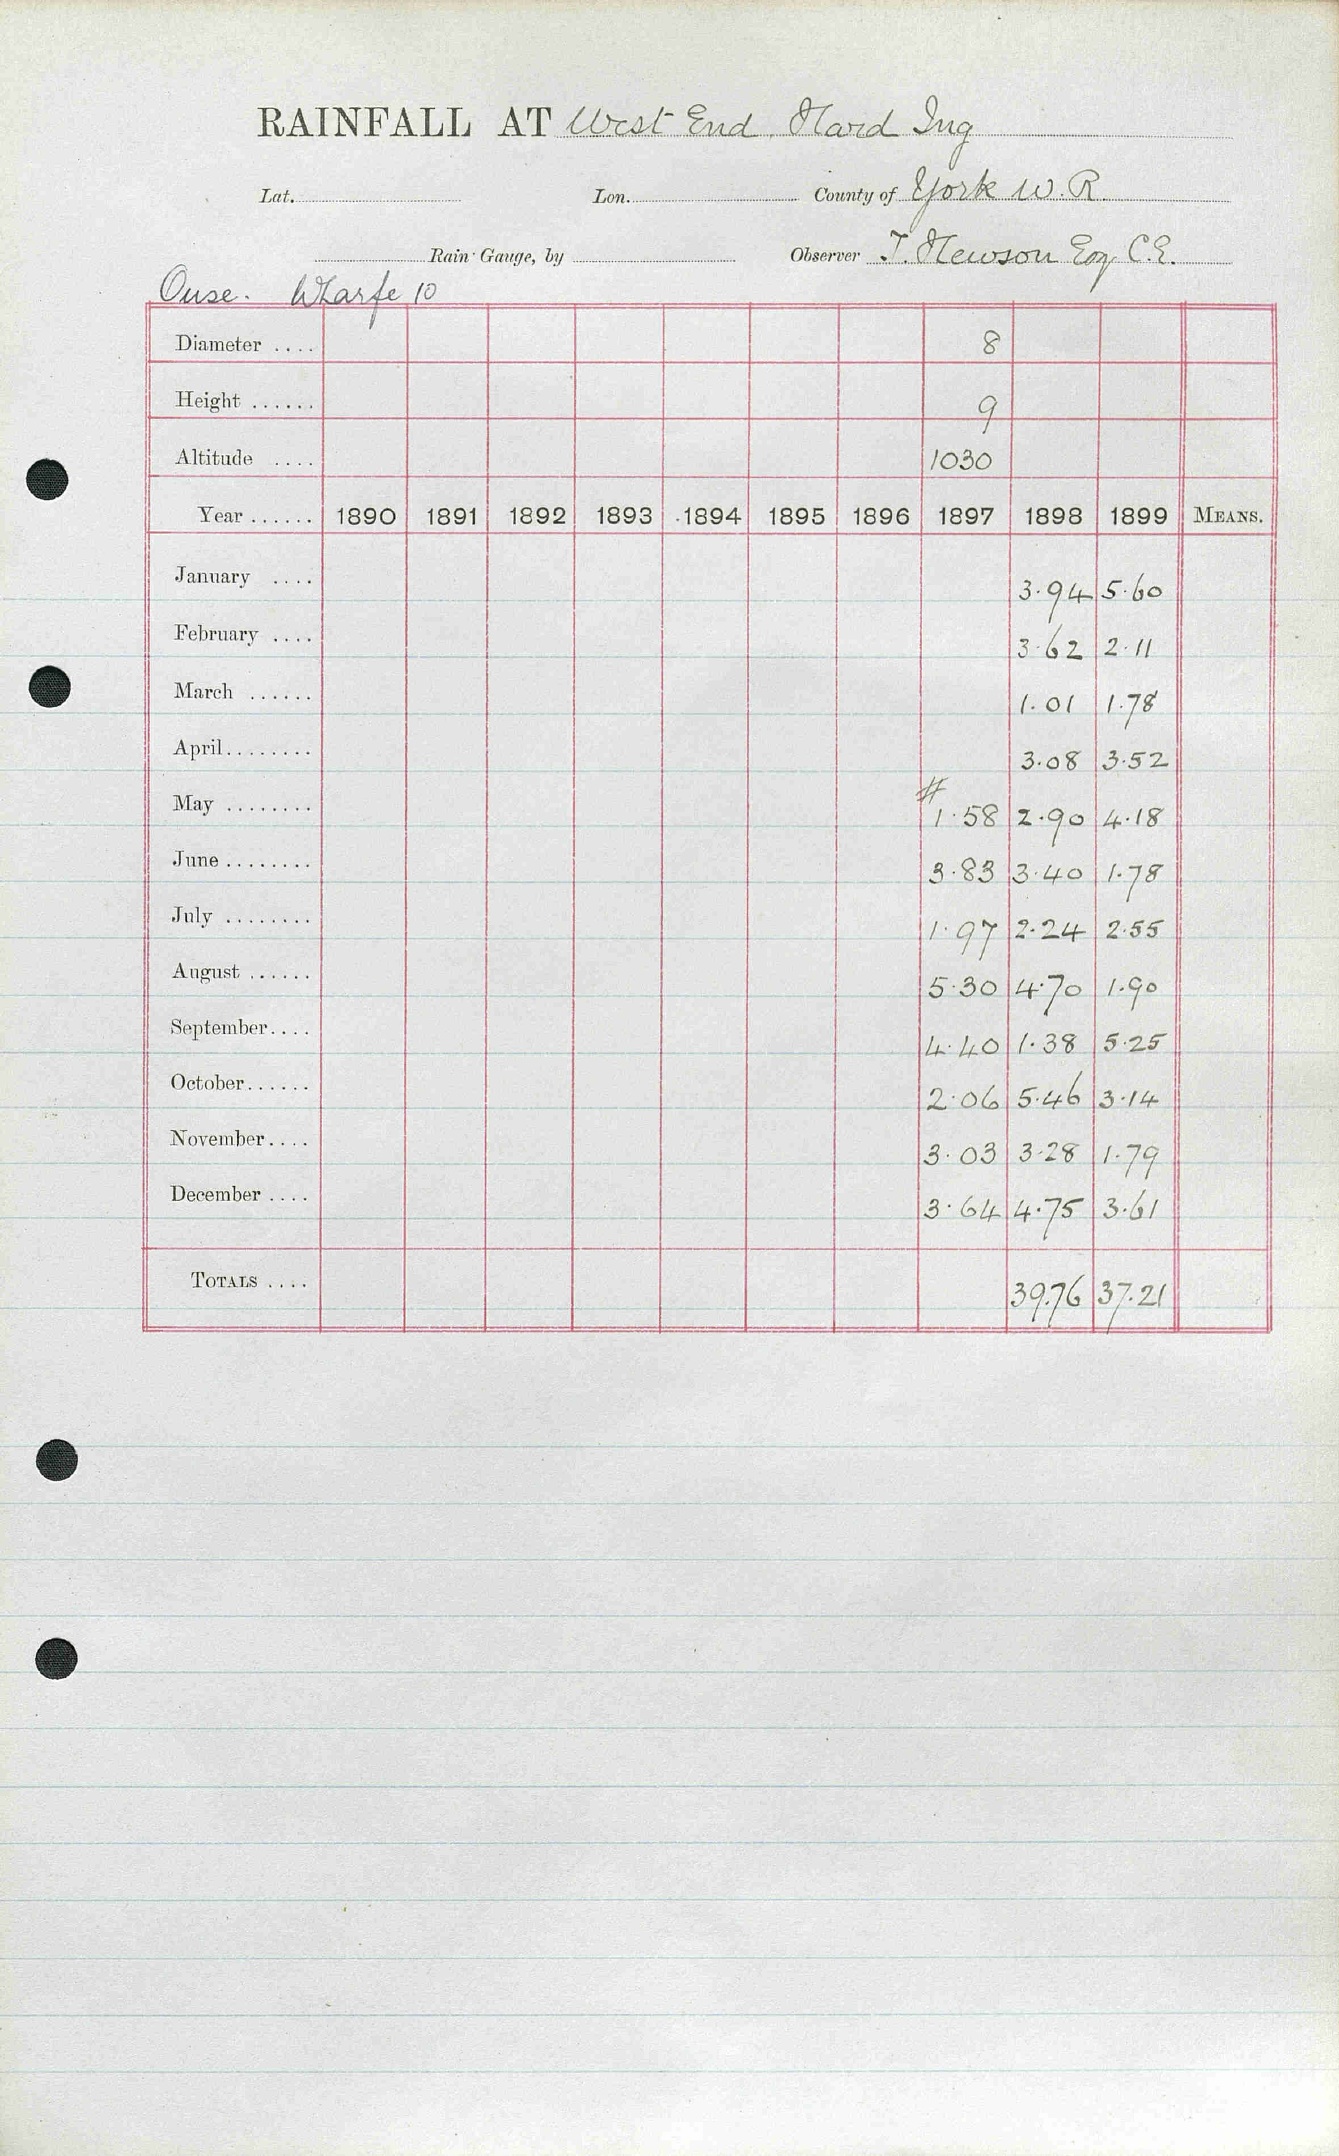 RAINFALL AT West End. Hard Ing
Lat. Lon. County of York W. R.
Rain Gauge, by Observer T. Hewson Esq C.E.
Ouse. Wharfe 10
Diameter .... 8
Height ...... 9
Altitude .... 1030
Year ...... 1890 1891 1892 1893 1894 1895 1896 1897 1898 1899 MEANS.
January .... 3.94 5.60
February .... 3.62 2.11
March ...... 1.01 1.78
April ........ 3.08 3.52
#
May ........ 1.58 2.90 4.18
June ........ 3.83 3.40 1.78
July ........ 1.97 2.24 2.55
August ...... 5.30 4.70 1.90
September .... 4.40 1.38 5.25
October ...... 2.06 5.46 3.14
November .... 3.03 3.28 1.79
December .... 3.64 4.75 3.61
TOTALS .... 39.76 37.21